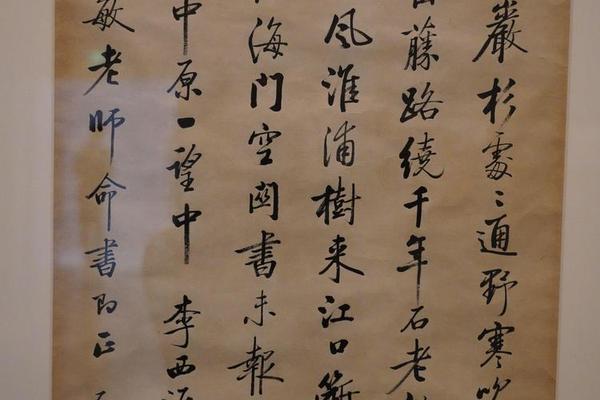 巖杉處〻通野寒吹
藤路繞千年石老
風淮浦樹来江口
海门空闵書未報
中原一望中 李西涯
敏老師命書即正